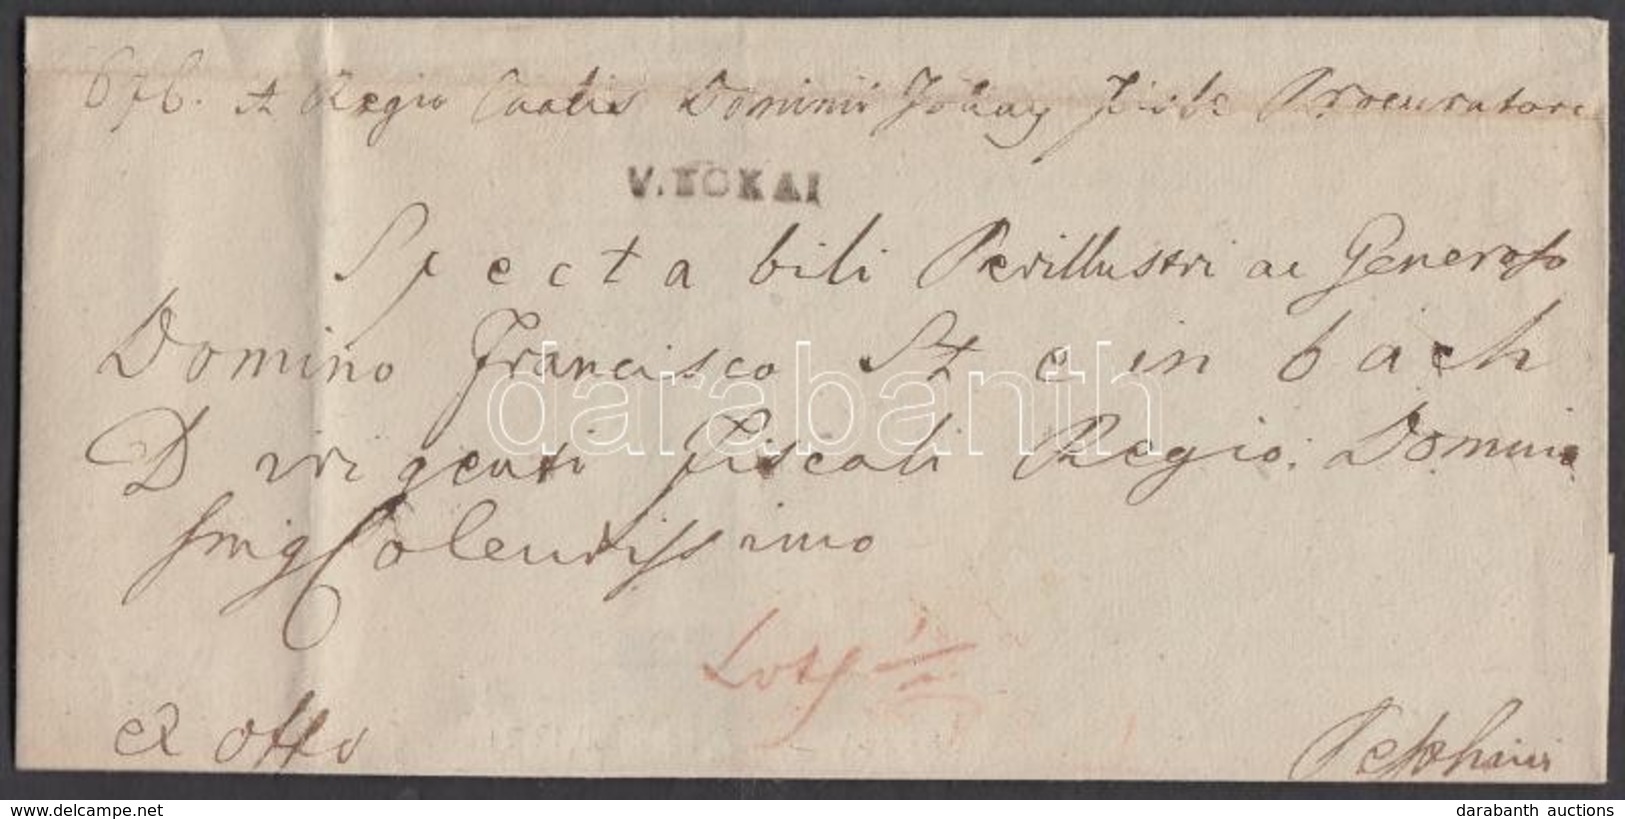 A Regio Caalis Dominii Tokay Procuratore
V. TOKAI
Spectabili Perillustri ac Generoso
Domino Francisco Szteinbach
Dirigenti Fiscali Regio. Domino
Colentissimo
Loth 1/2
ex offo
Pesthini
darabanth
www.darabanth.com
darabanth auctions